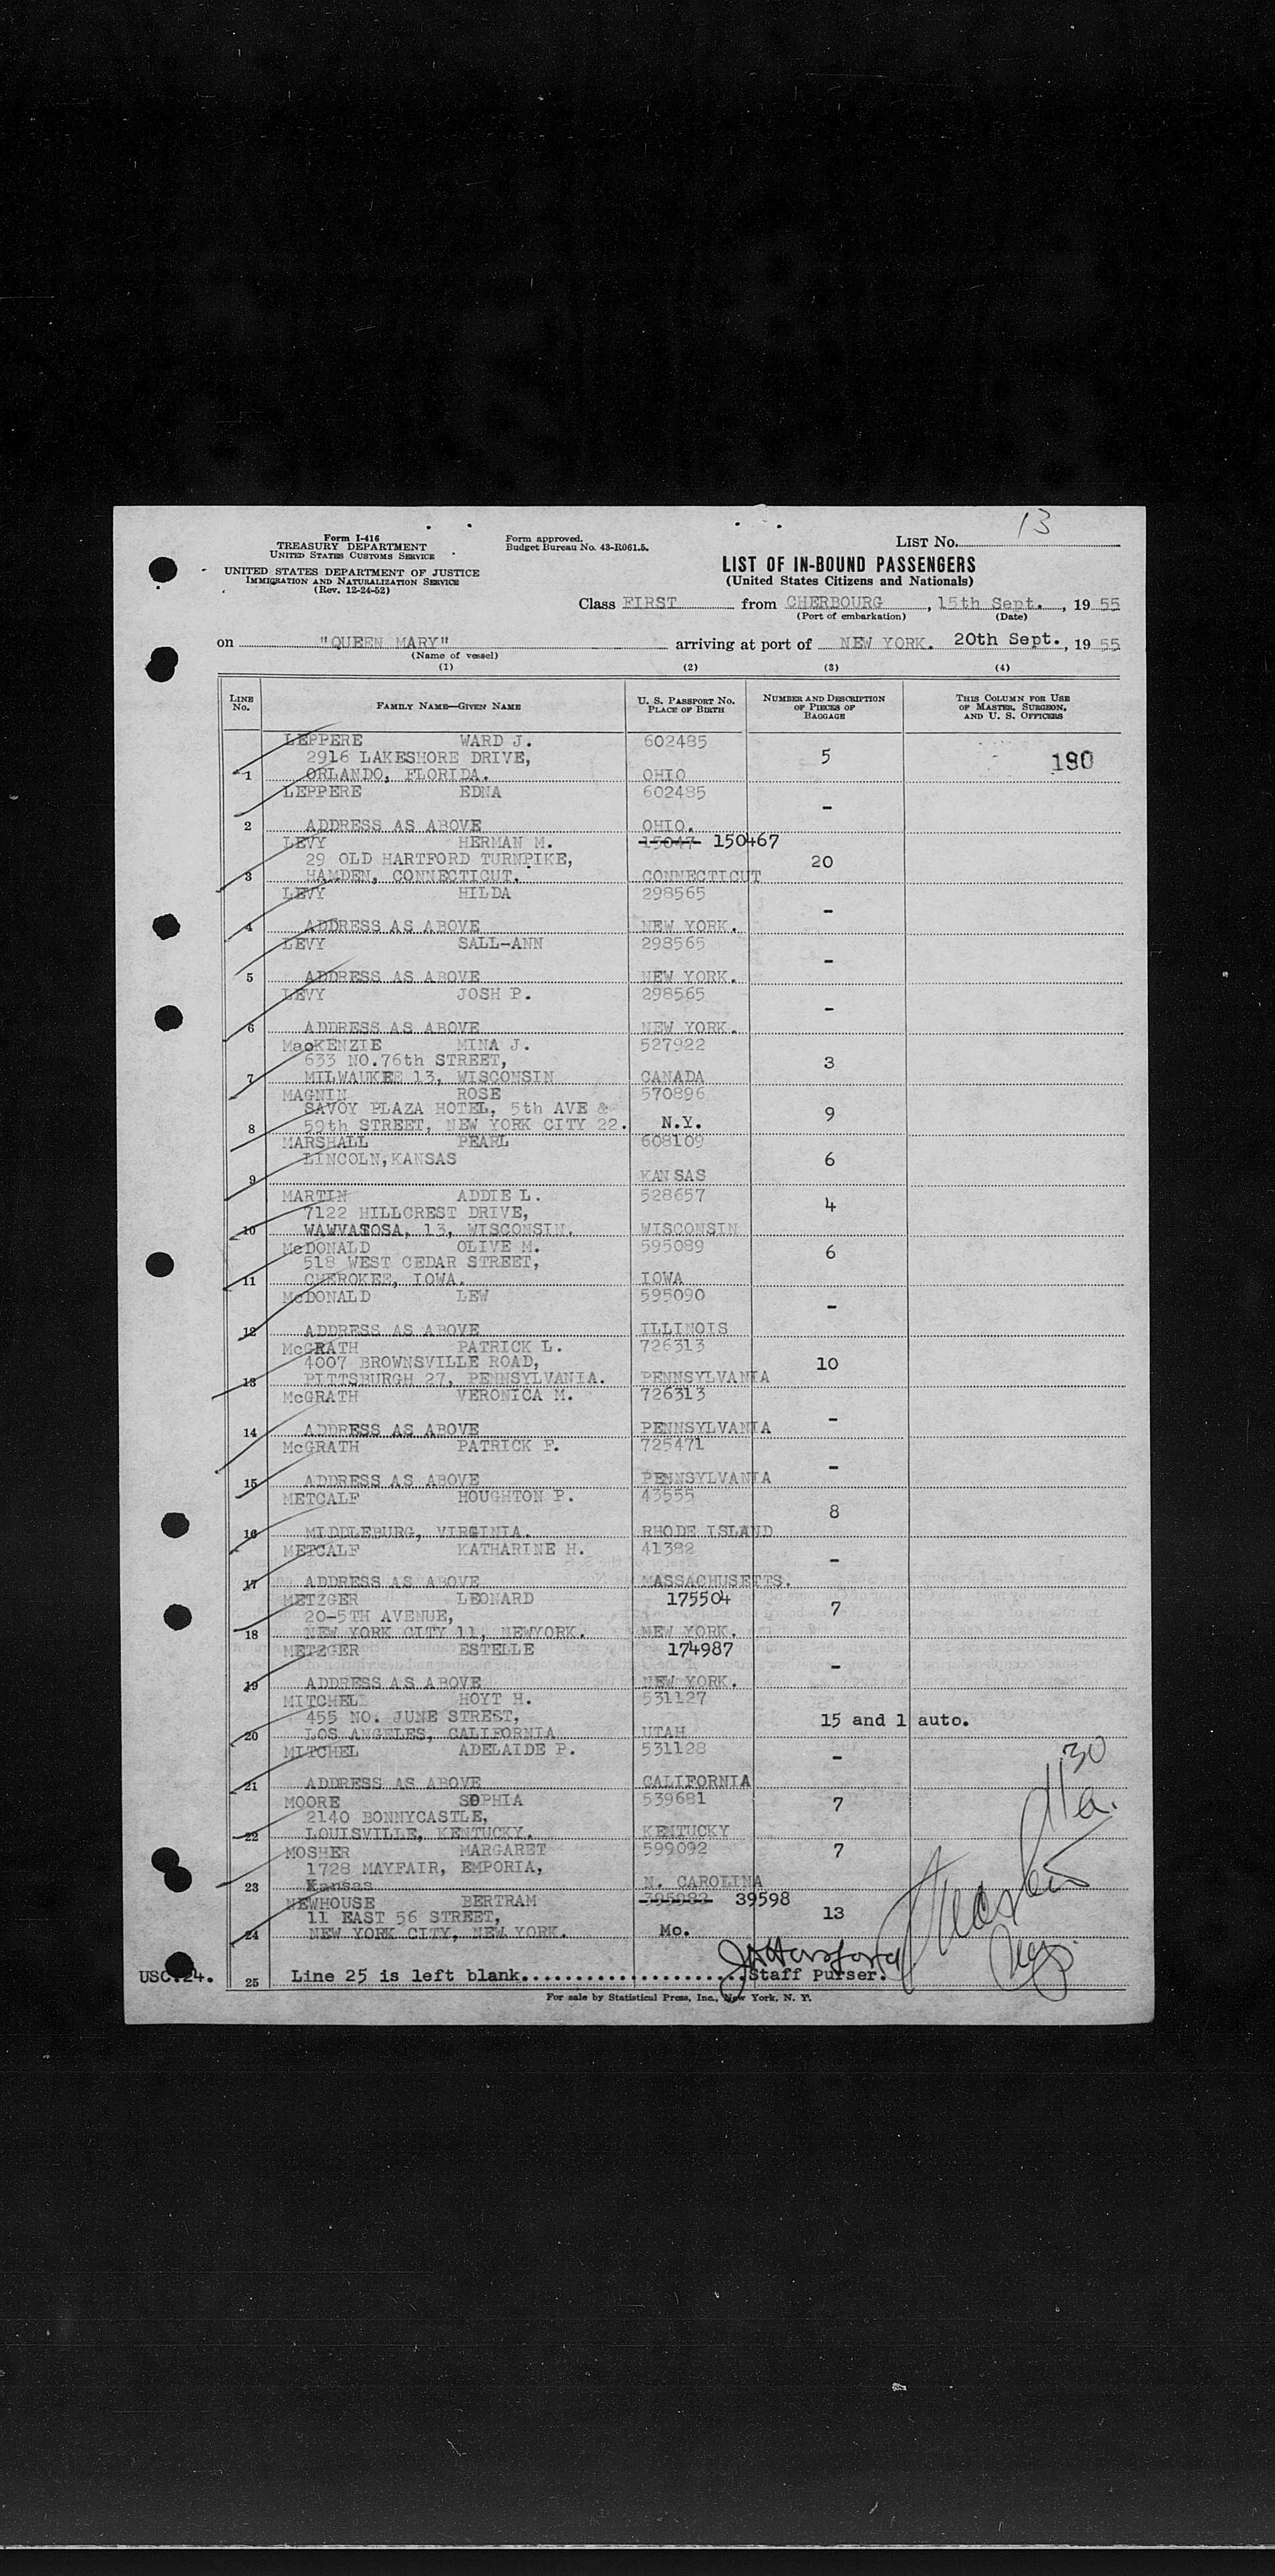 13
Form I-416
TREASURY DEPARTMENT
UNITED STATES CUSTOMS SERVICE
UNITED STATES DEPARTMENT OF JUSTICE
IMMIGRATION AND NATURALIZATION SERVICE
(Rev. 12-24-52)
Form approved.
Budget Bureau No. 43-R061.5.
LIST No.
LIST OF IN-BOUND PASSENGERS
(United States Citizens and Nationals)
Class FIRST from CHERBOURG, 15th Sept., 19 55
(Port of embarkation) (Date)
on "QUEEN MARY" arriving at port of NEW YORK. 20th Sept., 19 55
(Name of vessel)
(1) (2) (3) (4)
LINE No. FAMILY NAME—GIVEN NAME U. S. PASSPORT No. PLACE OF BIRTH NUMBER AND DESCRIPTION OF PIECES OF BAGGAGE THIS COLUMN FOR USE OF MASTER, SURGEON, AND U. S. OFFICERS
LEPPERE WARD J. 602485
2916 LAKESHORE DRIVE, 5 190
1 ORLANDO, FLORIDA. OHIO
LEPPERE EDNA 602485
-
2 ADDRESS AS ABOVE OHIO.
LEVY HERMAN M. 15047 150467
29 OLD HARTFORD TURNPIKE, 20
3 HAMDEN, CONNECTICUT. CONNECTICUT
LEVY HILDA 298565
-
4 ADDRESS AS ABOVE NEW YORK.
LEVY SALL-ANN 298565
-
5 ADDRESS AS ABOVE NEW YORK.
LEVY JOSH P. 298565
-
6 ADDRESS AS ABOVE NEW YORK.
MacKENZIE MINA J. 527922
633 NO.76th STREET, 3
7 MILWAUKEE 13, WISCONSIN CANADA
MAGNIN ROSE 570896
SAVOY PLAZA HOTEL, 5th AVE & 9
8 59th STREET, NEW YORK CITY 22. N.Y.
MARSHALL PEARL 608109
LINCOLN,KANSAS 6
9 KANSAS
MARTIN ADDIE L. 528657
7122 HILLCREST DRIVE, 4
10 WAWVATOSA, 13, WISCONSIN. WISCONSIN
McDONALD OLIVE M. 595089
518 WEST CEDAR STREET, 6
11 CHEROKEE, IOWA. IOWA
McDONALD LEW 595090
-
12 ADDRESS AS ABOVE ILLINOIS
McGRATH PATRICK L. 726313
4007 BROWNSVILLE ROAD, 10
13 PITTSBURGH 27, PENNSYLVANIA. PENNSYLVANIA
McGRATH VERONICA M. 726313
-
14 ADDRESS AS ABOVE PENNSYLVANIA
McGRATH PATRICK F. 725471
-
15 ADDRESS AS ABOVE PENNSYLVANIA
METCALF HOUGHTON P. 43555
8
16 MIDDLEBURG, VIRGINIA. RHODE ISLAND
METCALF KATHARINE H. 41382
-
17 ADDRESS AS ABOVE MASSACHUSETTS.
METZGER LEONARD 175504
20-5TH AVENUE, 7
18 NEW YORK CITY 11, NEWYORK. NEW YORK.
METZGER ESTELLE 174987
-
19 ADDRESS AS ABOVE NEW YORK.
MITCHEL HOYT H. 531127
455 NO. JUNE STREET, 15 and 1 auto.
20 LOS ANGELES, CALIFORNIA UTAH
MITCHEL ADELAIDE P. 531128
-
21 ADDRESS AS ABOVE CALIFORNIA
MOORE SOPHIA 539681
2140 BONNYCASTLE, 7
22 LOUISVILLE, KENTUCKY. KENTUCKY
MOSHER MARGARET 599092
1728 MAYFAIR, EMPORIA, 7
23 Kansas N. CAROLINA
NEWHOUSE BERTRAM 395982 39598
11 EAST 56 STREET, 13
24 NEW YORK CITY, NEW YORK. Mo.
USC.24. 25 Line 25 is left blank. Staff Purser.
For sale by Statistical Press, Inc., New York, N. Y.